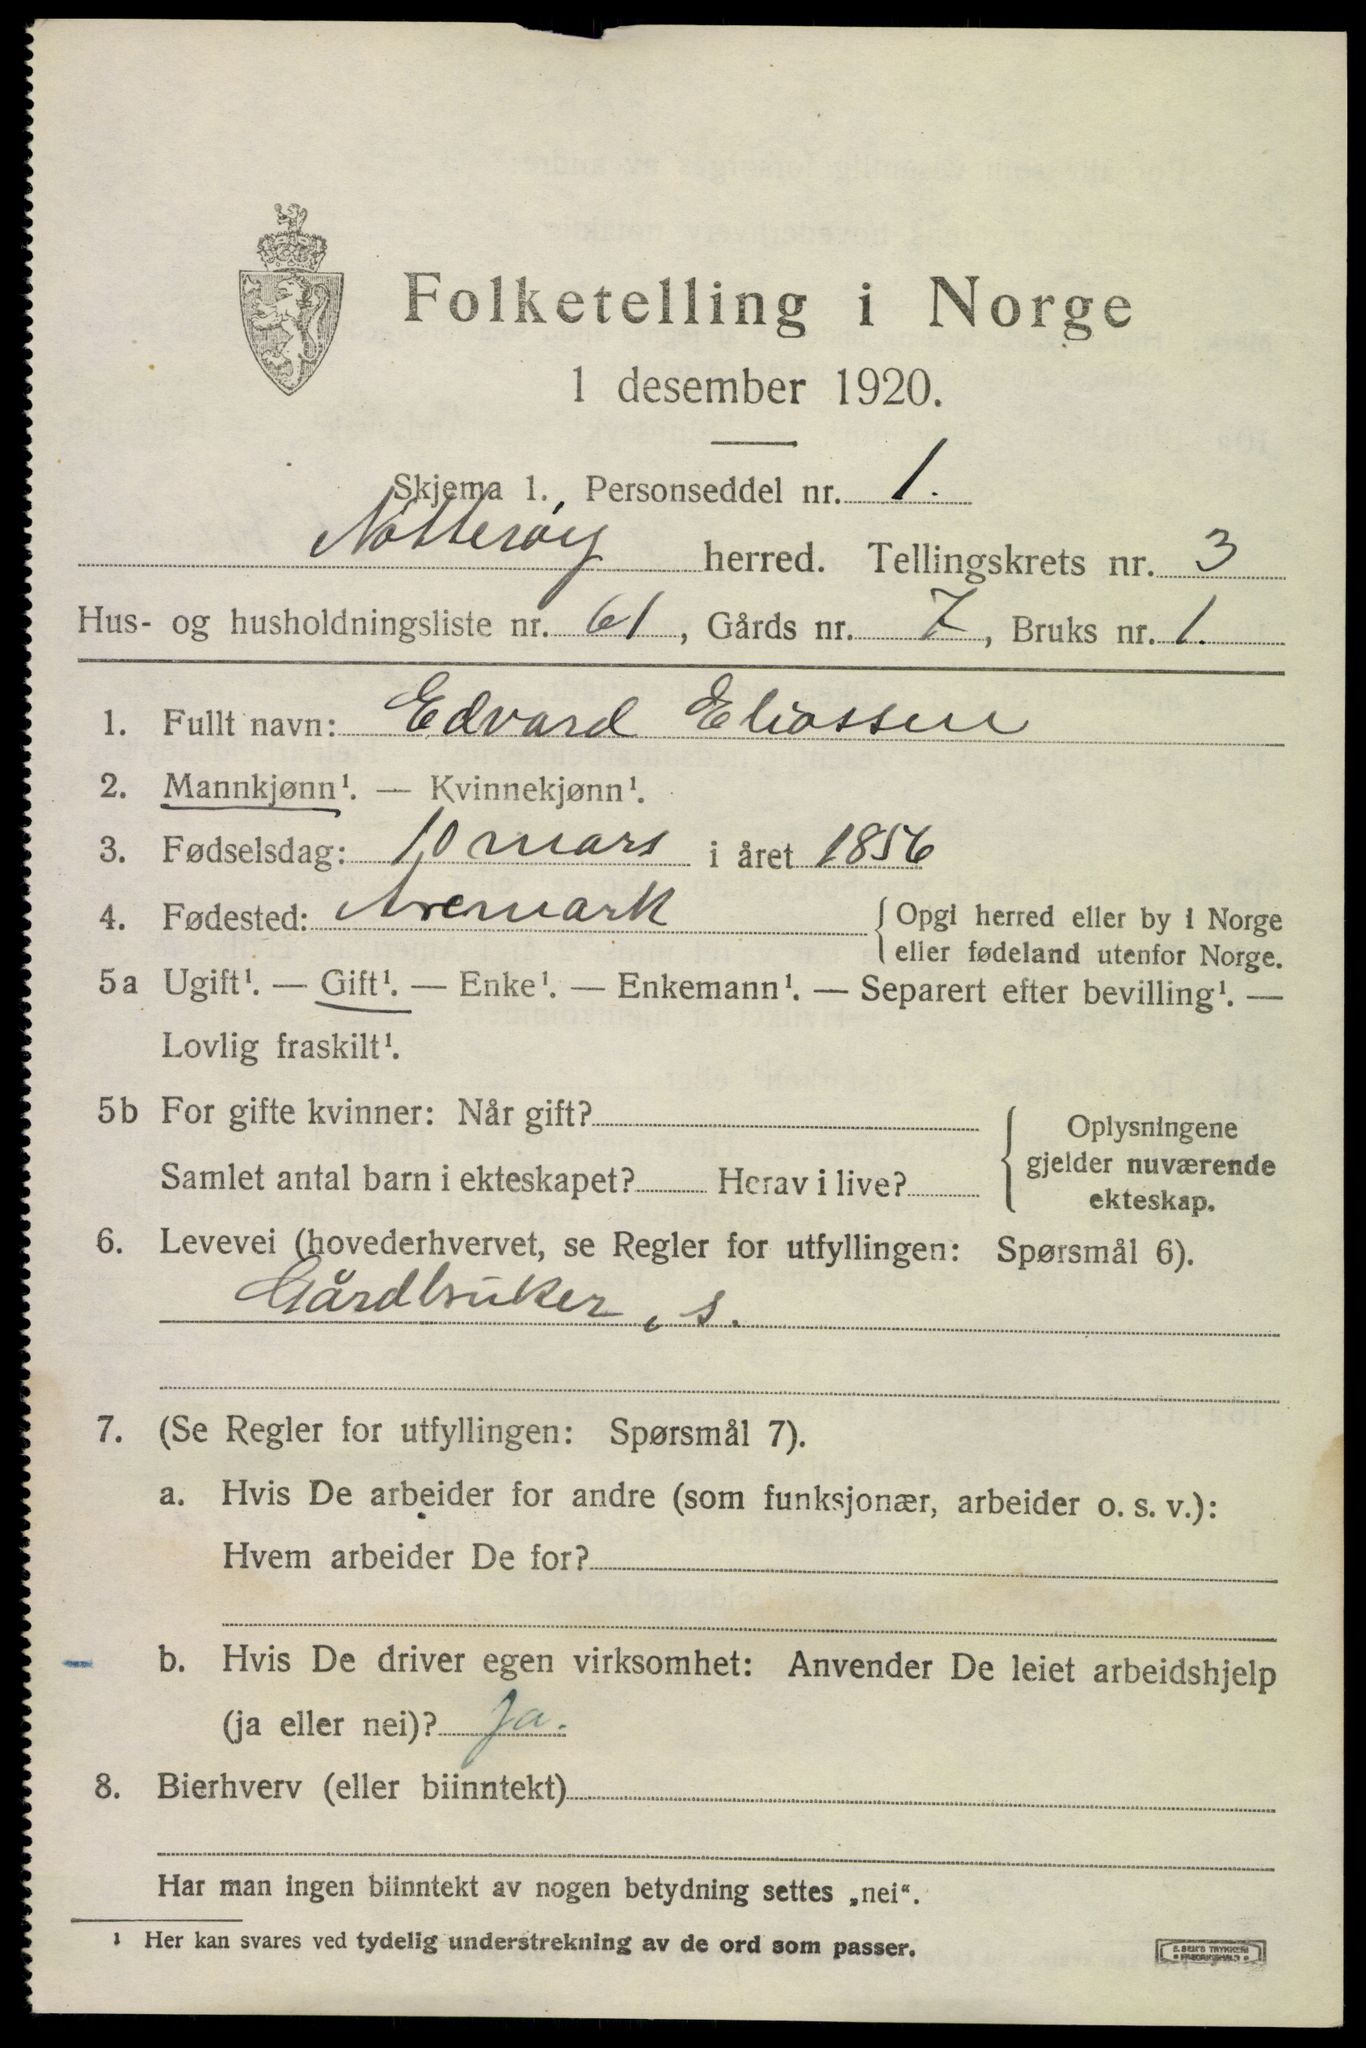 Folketelling i Norge
1 desember 1920.
Skjema 1. Personseddel nr. 1.
Nøtterøy herred. Tellingskrets nr. 3
Hus- og husholdningsliste nr. 61, Gårds nr. 7, Bruks nr. 1.
1. Fullt navn: Edvard Eliassen
2. Mannkjønn¹. — Kvinnekjønn¹.
3. Fødselsdag: 10 mars i året 1856
4. Fødested: Aremark {Opgi herred eller by i Norge
eller fødeland utenfor Norge.
5a Ugift¹. — Gift¹. — Enke¹. — Enkemann¹. — Separert efter bevilling¹. —
Lovlig fraskilt¹.
5b For gifte kvinner: Når gift?
Samlet antal barn i ekteskapet? Herav i live?
Oplysningene
gjelder nuværende
ekteskap.
6. Levevei (hovederhvervet, se Regler for utfyllingen: Spørsmål 6).
Gårdbruker, s.
7. (Se Regler for utfyllingen: Spørsmål 7).
a. Hvis De arbeider for andre (som funksjonær, arbeider o. s. v.):
Hvem arbeider De for?
b. Hvis De driver egen virksomhet: Anvender De leiet arbeidshjelp
(ja eller nei)? Ja.
8. Bierhverv (eller biinntekt)
Har man ingen biinntekt av nogen betydning settes „nei“.
¹ Her kan svares ved tydelig understrekning av de ord som passer.
E. SEM'S TRYKKERI
FREDRIKSHALD